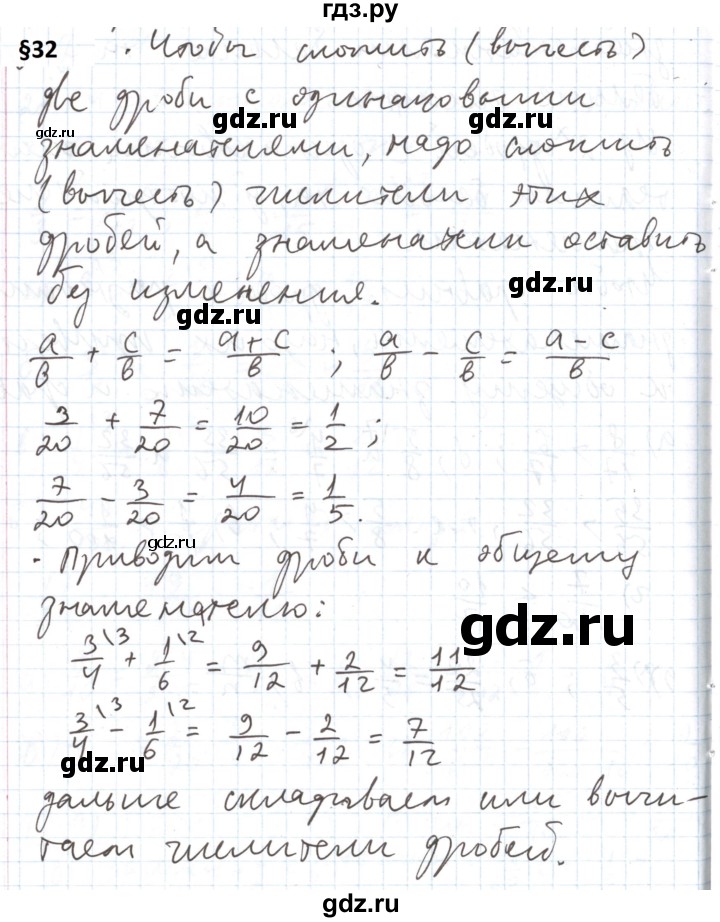 гдз.ру
§32 . Чтобы сложить (вычесть)
две дроби с одинаковыми
gdz.ru
gdz.ru
знаменателями, надо сложить
(вычесть) числители этих
gdz.ru
дробей, а знаменатели оставить
без изменения.
gdz.ru
a/в + c/в = a+c/в ; a/в - c/в = a-c/в
3/20 + 7/20 = 10/20 = 1/2 ;
7/20 - 3/20 = 4/20 = 1/5 .
gdz.ru
· Приводим дроби к общему
знаменателю:
gdz.ru
3/4 \3 + 1/6 \2 = 9/12 + 2/12 = 11/12
3/4 \3 - 1/6 \2 = 9/12 - 2/12 = 7/12
gdz.ru
дальше складываем или вычи-
таем числители дробей.
gdz.ru
gdz.ru